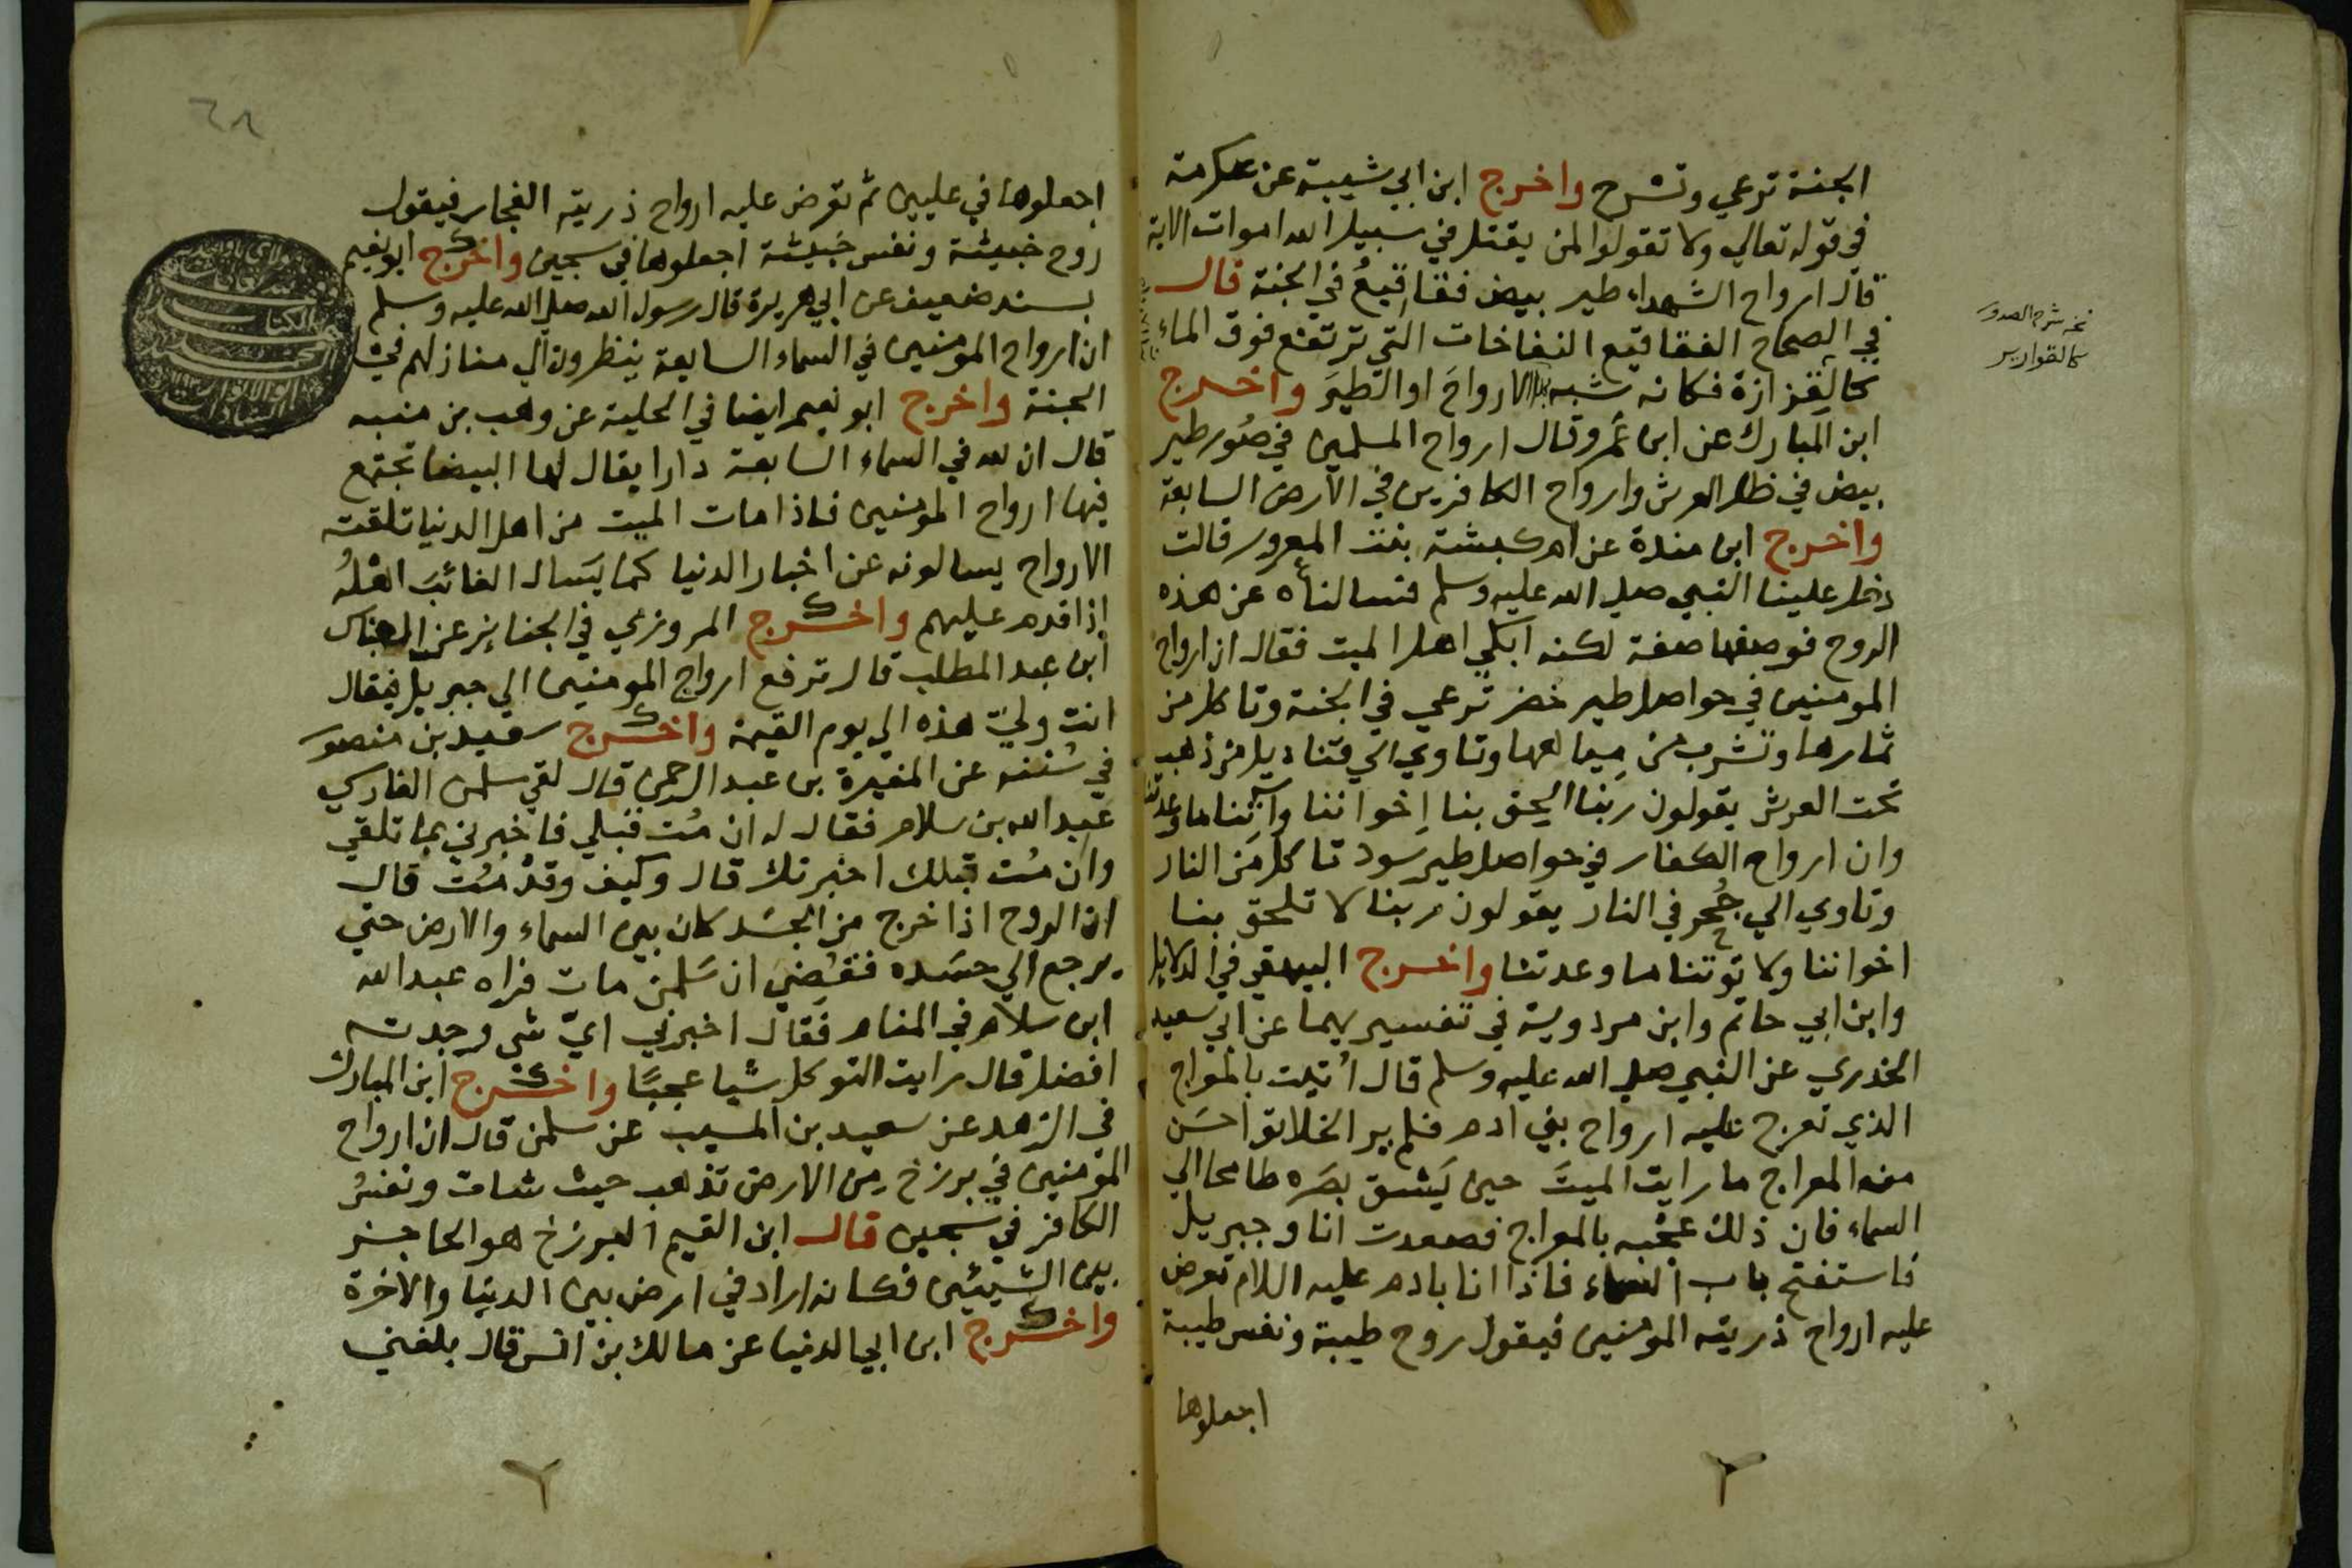 الجنة ترعي وتسرح واخرج ابن ابي شيبة عن عكرمة
في قوله تعالي ولا تقولوا لمن يقتل في سبيل الله اموات الاية
قال ارواح الشهداء طير بيض فقاقيع في الجنة قال
في الصحاح الفقاقيع النفاخات التي ترتفع فوق الماء
كالقزازة فكانه شبه بها الارواح او الطير واخرج
ابن المبارك عن ابن عمرو قال ارواح المسلمين في صور طير
بيض في ظل العرش وارواح الكافرين في الارض السابعة
واخرج ابن مندة عن ام كبشة بنت المعرور قالت
دخل علينا النبي صلي الله عليه وسلم فسالناه عن هذه
الروح فوصفها صفة لكنه ابكي اهل الميت فقال ان ارواح
المومنين في حواصل طير خضر ترعي في الجنة وتاكل من
ثمارها وتشرب من مياهها وتاوي الي قناديل من ذهب
تحت العرش يقولون ربنا الحق بنا اخواننا واتنا ما وعدتنا
وان ارواح الكفار في حواصل طير سود تاكل من النار
وتاوي الي جحر في النار يقولون ربنا لا تلحق بنا
اخواننا ولا توتنا ما وعدتنا واخرج البيهقي في الدلايل
وابن ابي حاتم وابن مردوية في تفسيريهما عن ابي سعيد
الخدري عن النبي صلي الله عليه وسلم قال اتيت بالمعراج
الذي تعرج عليه ارواح بني ادم فلم ير الخلايق احسن
من المعراج ما رايت الميت حين يشق بصره طامحا الي
السماء فان ذلك عجبه بالمعراج فصعدت انا وجبريل
فاستفتح باب السماء فاذا انا بادم عليه السلام تعرض
عليه ارواح ذريته المومنين فيقول روح طيبة ونفس طيبة
اجعلوها
نخه شرح الصدور
كالقوارير
٦٨
اجعلوها في عليين ثم تعرض عليه ارواح ذريته الفجار فيقول
روح خبيثة ونفس خبيثة اجعلوها في سجين واخرج ابو نعيم
بسند ضعيف عن ابي هريرة قال رسول الله صلي الله عليه وسلم
ان ارواح المومنين في السماء السابعة ينظرون الي منازلهم في
الجنة واخرج ابو نعيم ايضا في الحلية عن وهب بن منبه
قال ان لله في السماء السابعة دارا يقال لها البيضا تجتمع
فيها ارواح المومنين فاذا مات الميت من اهل الدنيا تلقته
الارواح يسالونه عن اخبار الدنيا كما يسال الغائب اهله
اذا قدم عليهم واخرج المروزي في الجنائز عن العباس
ابن عبد المطلب قال ترفع ارواح المومنين الي جبريل فيقال
انت ولي هذه الي يوم القيمة واخرج سعيد بن منصور
في سننه عن المغيرة بن عبد الرحمن قال لقي سلمن الفارسي
عبد الله بن سلام فقال له ان مت قبلي فاخبرني بما تلقي
وان مت قبلك اخبرتك قال وكيف وقد مت قال
ان الروح اذا خرج من الجسد كان بين السماء والارض حتي
يرجع الي جسده فقضي ان سلمن مات فراه عبد الله
ابن سلام في المنام فقال اخبرني اي شي وجدته
افضل قال رايت التوكل شيا عجبا واخرج ابن المبارك
في الزهد عن سعيد بن المسيب عن سلمن قال ان ارواح
المومنين في برزخ من الارض تذهب حيث شات ونفس
الكافر في سجين قال ابن القيم البرزخ هو الحاجز
بين الشيئين فكانه اراد في ارض بين الدنيا والاخرة
واخرج ابن ابي الدنيا عن مالك بن انس قال بلغني